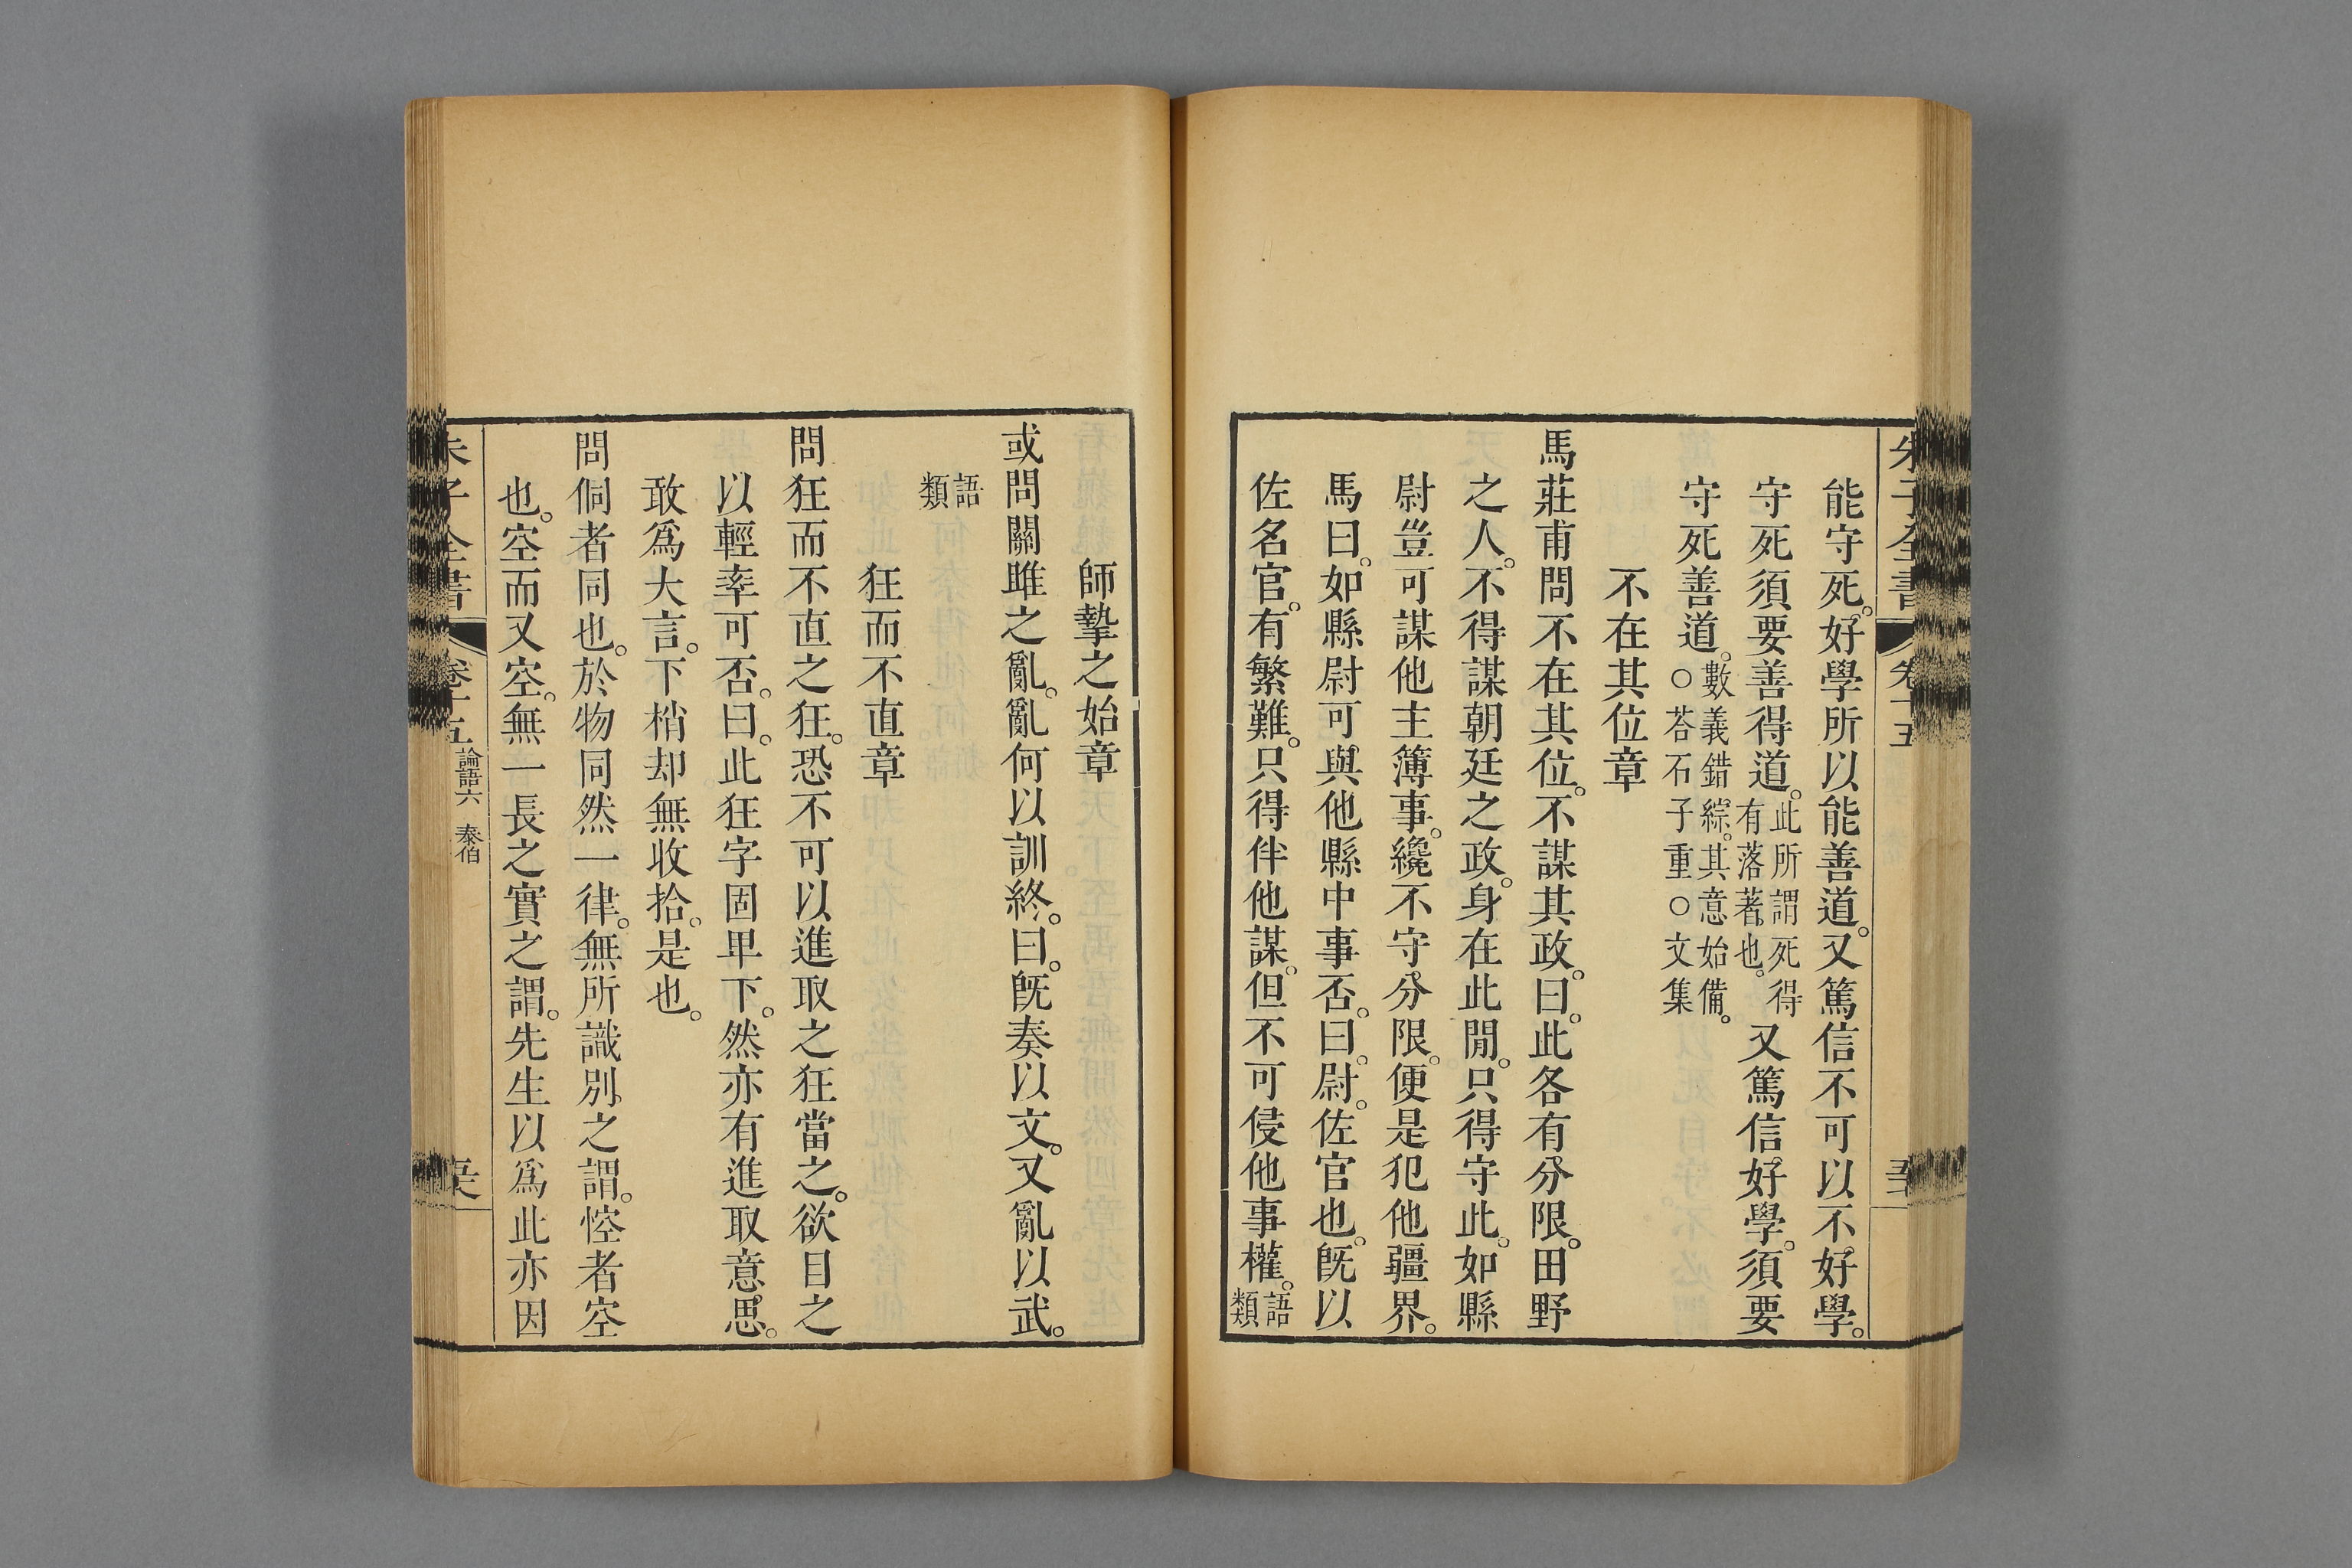 朱子全書 卷十五
能守死。好學所以能善道。又篤信不可以不好學。
守死須要善得道。此所謂死得有落著也。又篤信好學。須要
守死善道。數義錯綜。其意始備。○荅石子重○文集
不在其位章
馬莊甫問不在其位。不謀其政。曰。此各有分限。田野
之人。不得謀朝廷之政。身在此閒。只得守此。如縣
尉豈可謀他主簿事。纔不守分限。便是犯他疆界。
馬曰。如縣尉可與他縣中事否。曰。尉。佐官也。旣以
佐名官。有繁難。只得伴他謀。但不可侵他事權。語類
師摯之始章
或問關雎之亂。亂何以訓終。曰。旣奏以文。又亂以武。
語類
狂而不直章
問狂而不直之狂。恐不可以進取之狂當之。欲目之
以輕率可否。曰。此狂字固卑下。然亦有進取意思。
敢爲大言。下梢却無收拾。是也。
問侗者同也。於物同然一律。無所識別之謂。悾者空
也。空而又空。無一長之實之謂。先生以爲此亦因
朱子全書 卷十五 論語六 泰伯